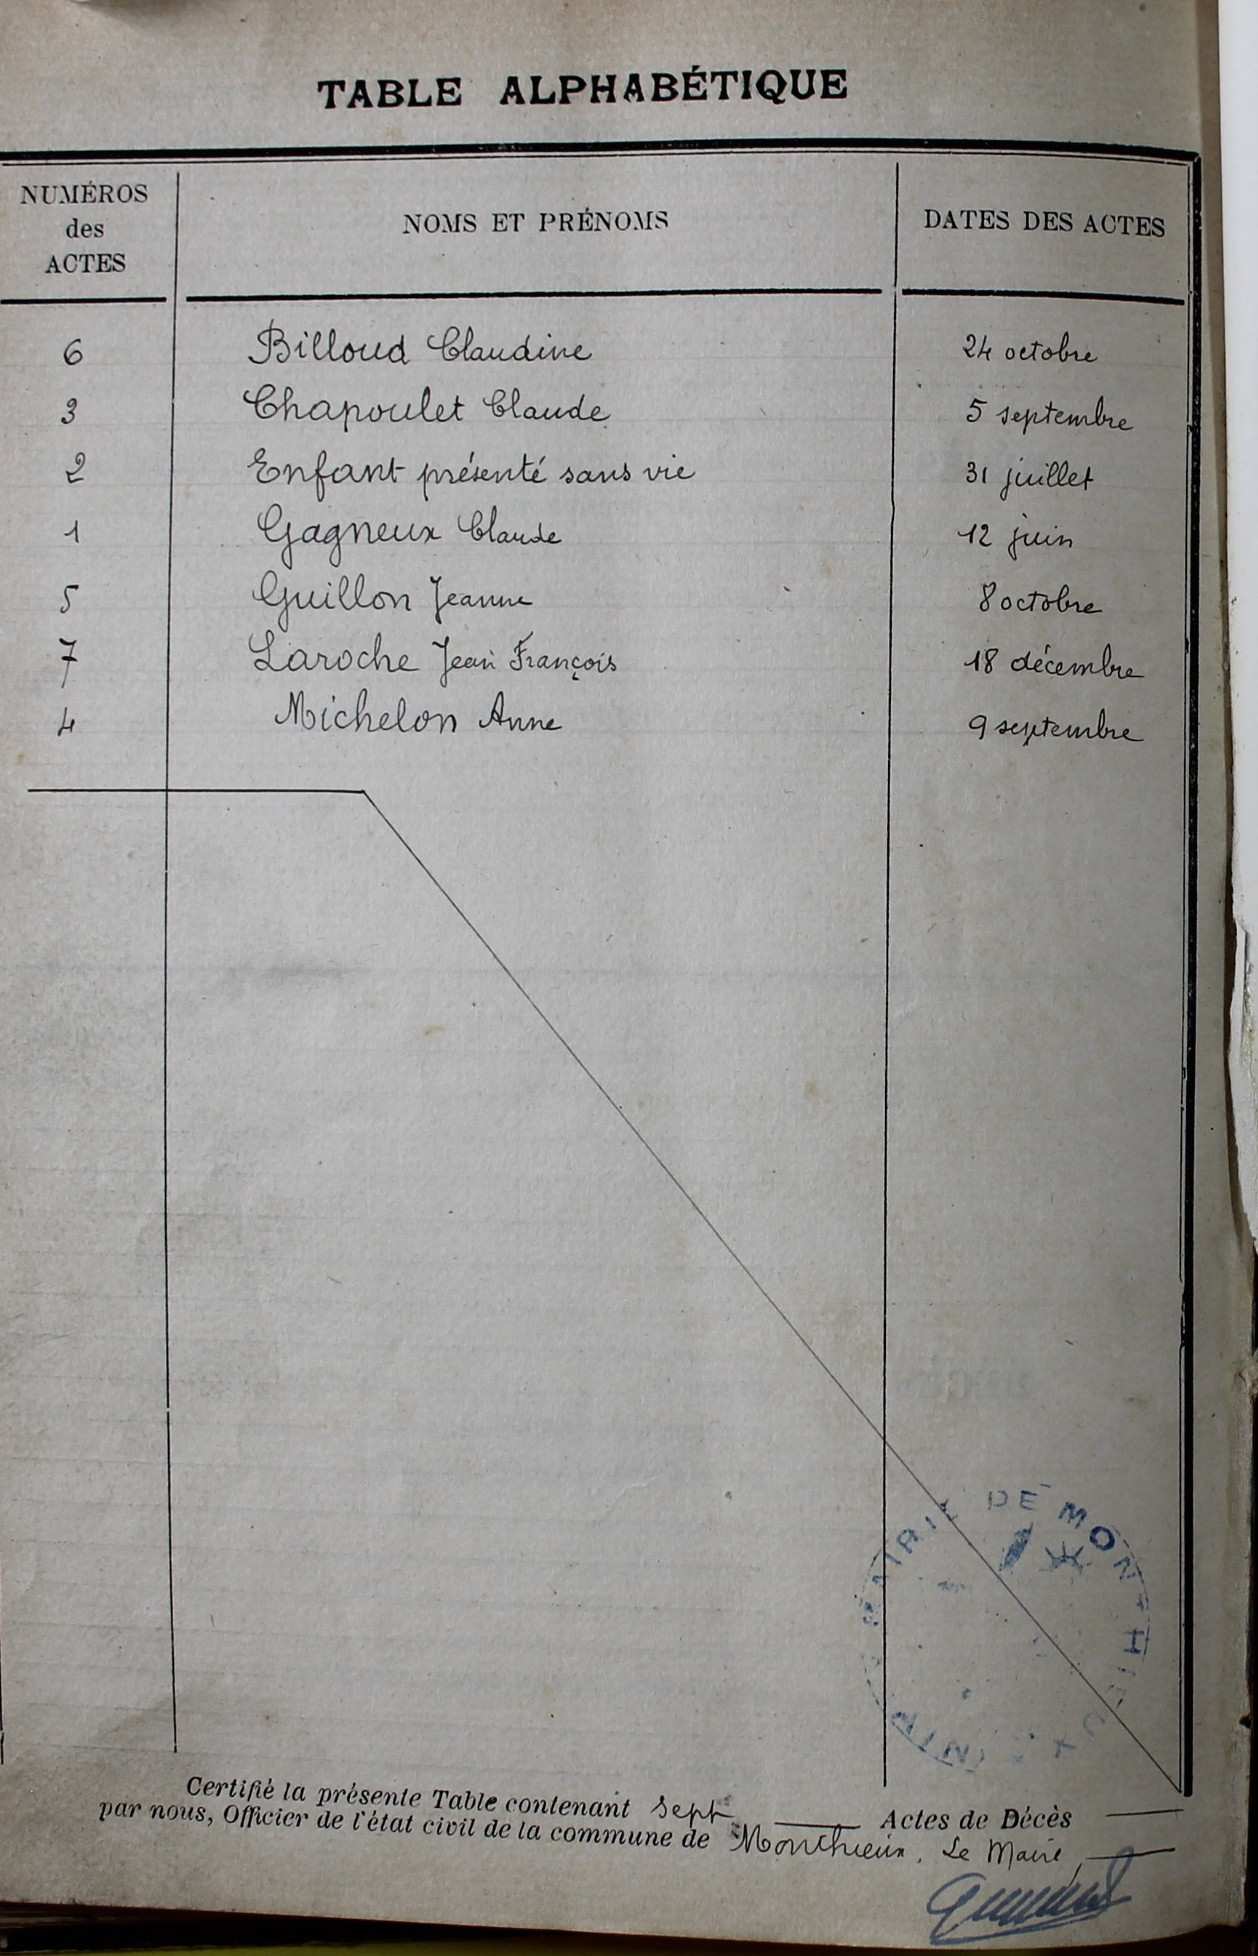 TABLE ALPHABÉTIQUE
NUMÉROS des ACTES NOMS ET PRÉNOMS DATES DES ACTES
6 Billoud Claudine 24 octobre
3 Chapoulet Claude 5 septembre
2 Enfant présenté sans vie 31 juillet
1 Gagneux Claude 12 juin
5 Guillon Jeanne 8 octobre
7 Laroche Jean François 18 décembre
4 Michelon Anne 9 septembre
MAIRIE DE MONTHIEUX (AIN)
Certifié la présente Table contenant sept Actes de Décès
par nous, Officier de l'état civil de la commune de Monthieux. Le Maire,